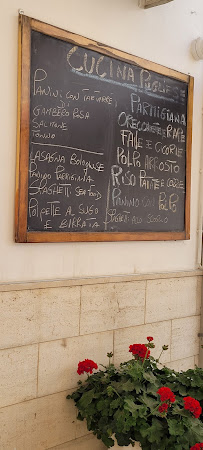 CUCINA PUGLIESE
PANINI CON TARTARE
DI
GAMBERO ROSA
SALMONE
TONNO
LASAGNA BOLOGNESE
PARMIGIANA
SPAGHETTI SEAFOOD
POLPETTE AL SUGO
E BURRATA
PARMIGIANA
ORECCHIETTE E RAPE
FAVE E CICORIE
POLPO ARROSTO
RISO PATATE E COZZE
PANINO CON POLPO
SPAGHETTI ALLO SCOGLIO